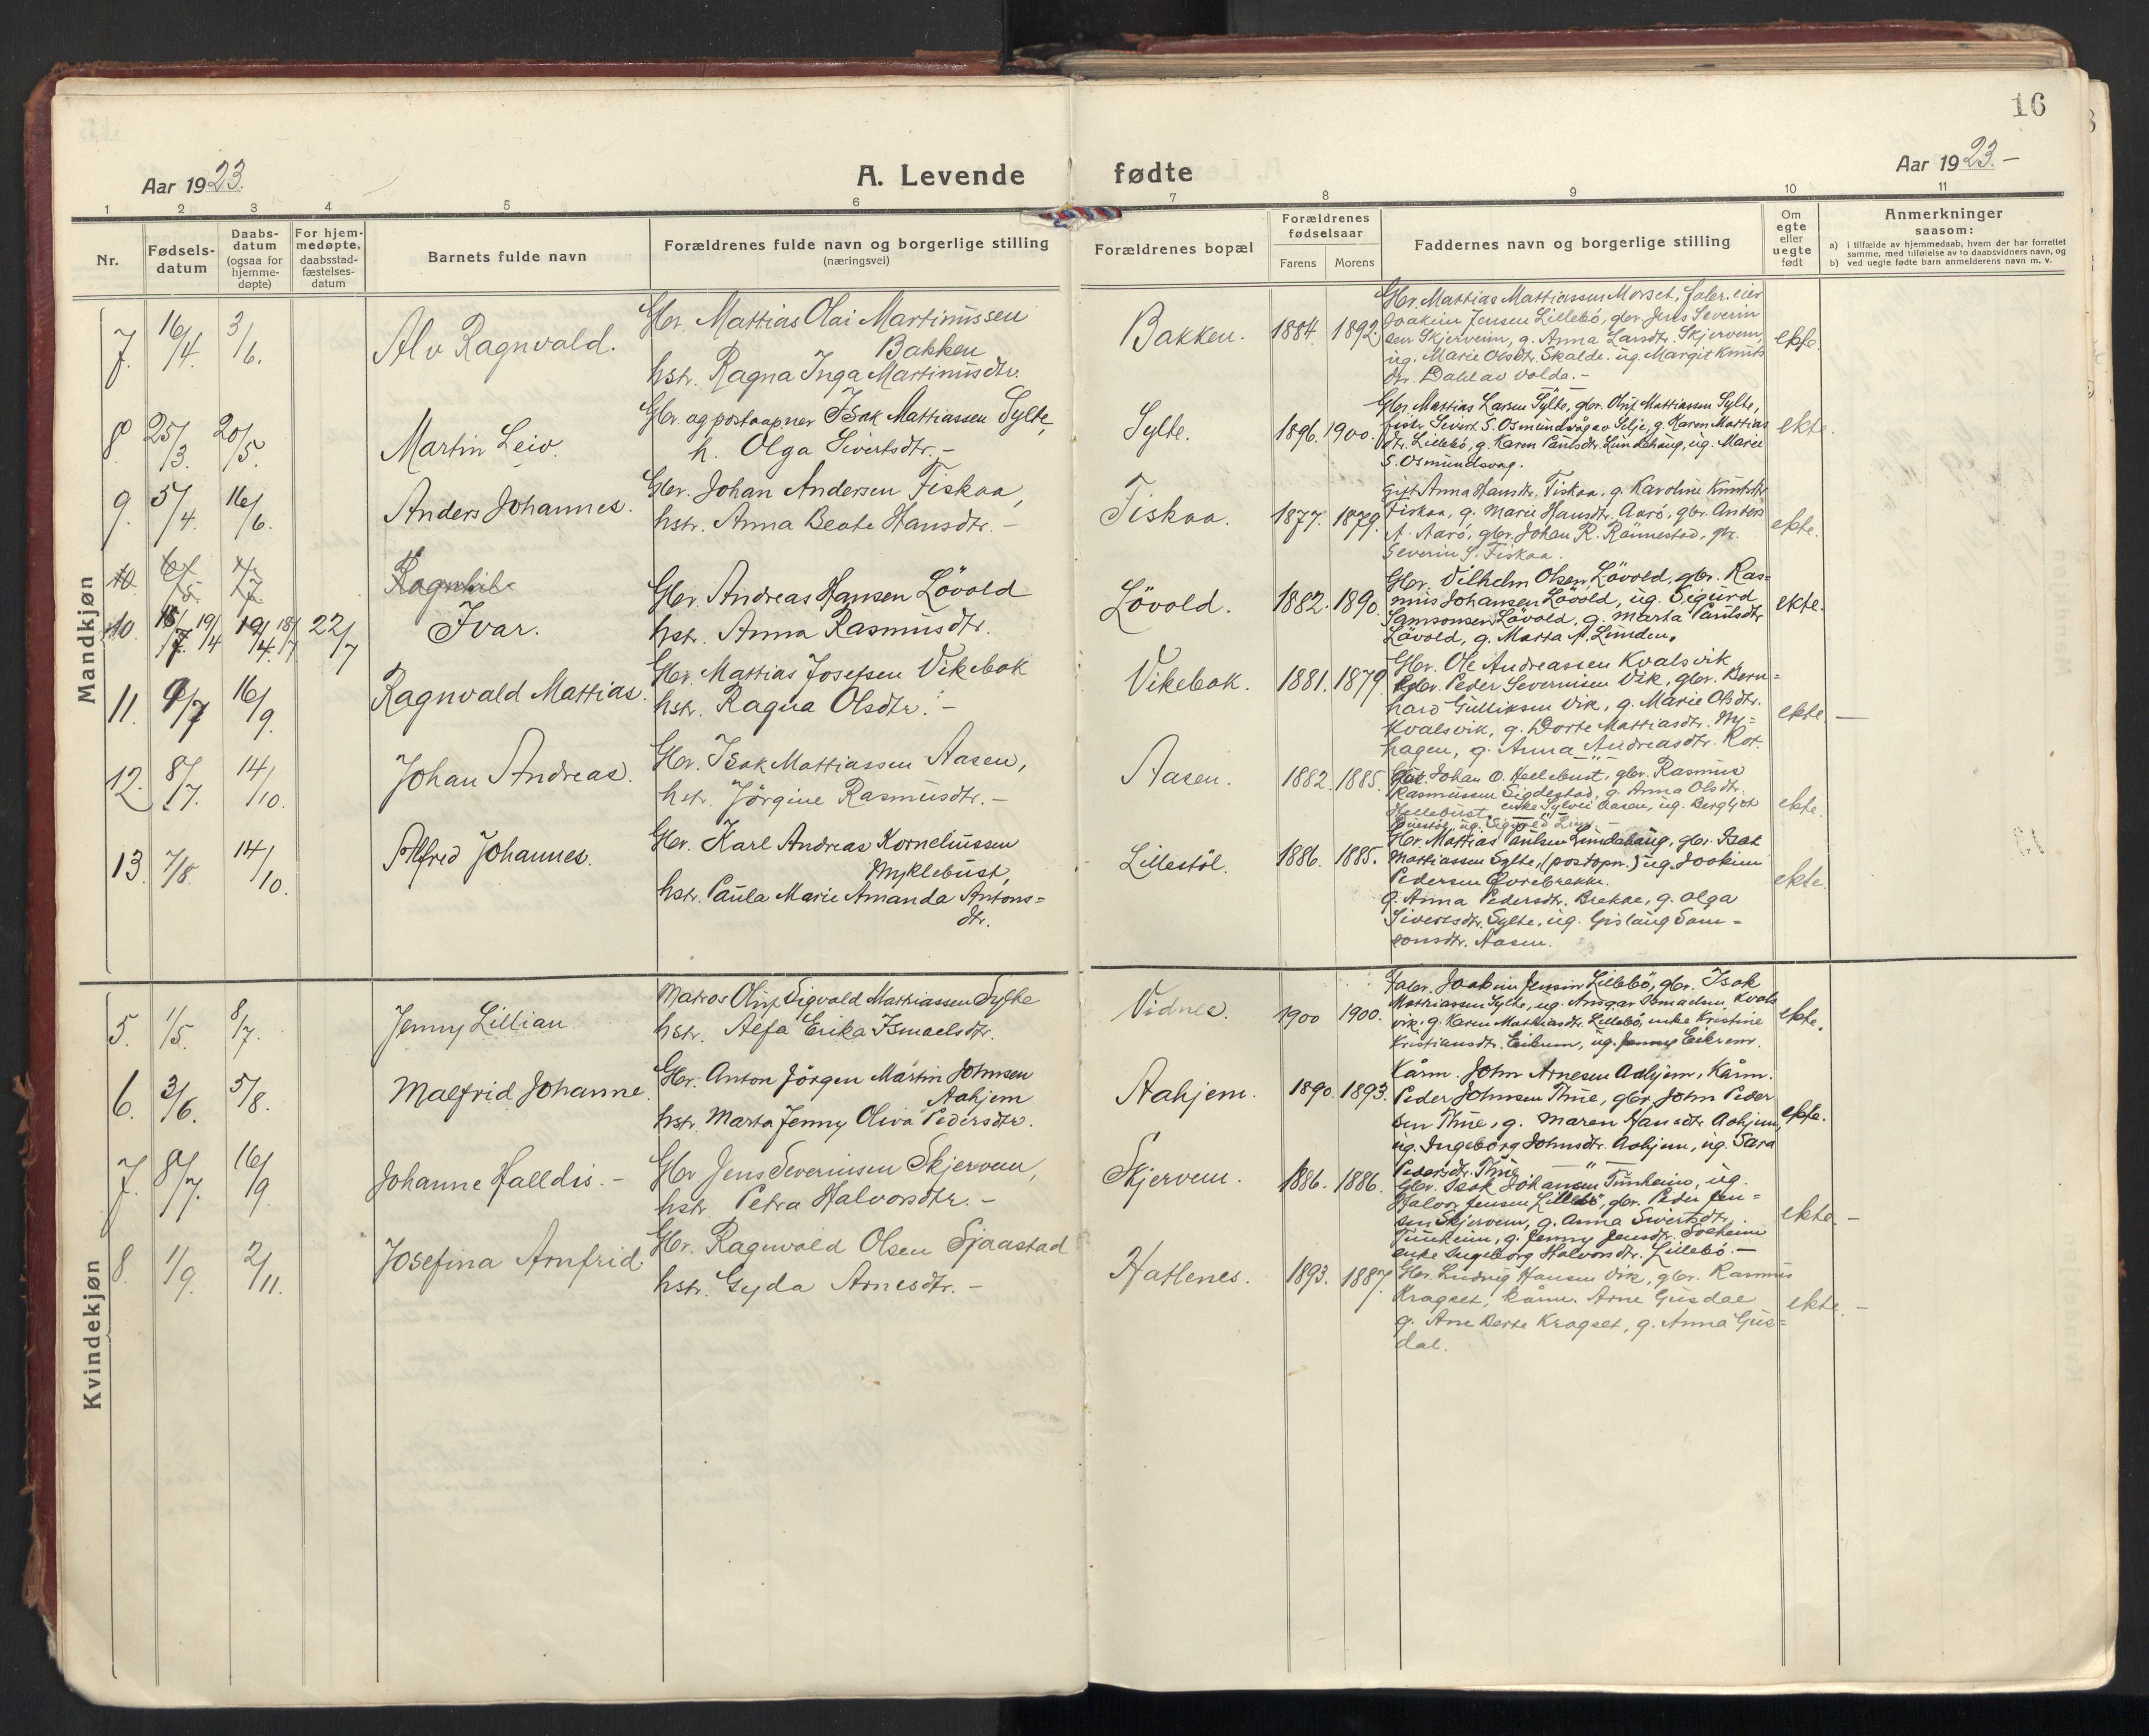 16
Aar 1923.
A. Levende
fødte
Aar 1923. –
1 2 3 4 5 6 7 8 9 10 11
Nr.
Fødsels-
datum
Daabs-
datum
(ogsaa for
hjemme-
døpte)
For hjem-
medøpte,
daabsstad-
fæstelses-
datum
Barnets fulde navn
Forældrenes fulde navn og borgerlige stilling
(næringsvei)
Forældrenes bopæl
Forældrenes
fødselsaar
Farens Morens
Faddernes navn og borgerlige stilling
Om
egte
eller
uegte
født
Anmerkninger
saasom:
a) i tilfælde av hjemmedaab, hvem der har forrettet
samme, med tilføielse av to daabsvidners navn, og
b) ved uegte fødte barn anmelderens navn m. v.
Mandkjøn
7. 16/4. 3/6. Alv Ragnvald.
Gbr. Mattias Olai Martinussen
Bakken
hstr. Ragna Inga Martinusdtr.
Bakken. 1884. 1892.
Gbr. Mattias Mattiassen Morset, faber. eier
Joakim Jensen Lillebö, gbr. Jens Severin
sen Skjerveim, g. Anna Larsdtr. Skjervem,
ug. Marie Olsdtr. Skalde. ug. Margit Knuts
dtr. Dahl av Volda. –
ekte.
8. 25/3. 20/5. Martin Leiv.
Gbr og postaapner Isak Mattiassen Sylte,
h. Olga Sivertsdtr. –
Sylte. 1896. 1900.
Gbr. Mattias Larsen Sylte, gbr. Oluf Mattiassen Sylte,
fisk. Sivert S. Osmundvåg av Selje, g. Karen Mattias
dtr. Lillebö, g. Karen Paulsdtr. Lundehaug, ug. Marie
S. Osmundsvag.
ekte.
9. 5/4. 16/6. Anders Johannes.
Gbr. Johan Andersen Fiskaa,
hstr. Anna Beate Hansdtr. –
Fiskaa. 1877. 1879.
Gift Anna Hansdtr. Fiskaa, g. Karoline Knutsdtr
Fiskaa, g. Marie Hansdtr. Aarö, gbr. Anders
A. Aarö, gbr. Johan R. Rönnestad, gbr.
Severin S. Fiskaa.
ekte.
10. Ragnhild
10. 18/7. 19/4 19/4. 18/7 22/7 Ivar.
Gbr. Andreas Hansen Lövold
hstr. Anna Rasmusdtr.
Lövold. 1882. 1890.
Gbr. Vilhelm Olsen Lövold, gbr. Ras-
mus Johansen Lövold, ug. Sigurd
Samsonsen Lövold, g. Marta Paulsdtr
Lövold, g. Marta A. Lunden.
ekte.
11. 9/7 16/9. Ragnvald Mattias.
Gbr. Mattias Josefsen Vikebak
hstr. Ragna Olsdtr. –
Vikebak. 1881. 1879.
Gbr. Ole Andreassen Kvalsvik,
gbr. Peder Severinsen Vik, gbr. Bern-
hard Gulliksen Vik, g. Marie Olsdtr.
Kvalsvik, g. Dorte Mattiasdtr. My-
hagen, g. Anna Andreasdtr. Rot.
ekte. –
12. 8/7. 14/10. Johan Andreas.
Gbr. Isak Mattiassen Aasen,
hstr. Jörgine Rasmusdtr. –
Aasen. 1882. 1885.
Gbr. Johan O. Hellebust, gbr. Rasmus
Rasmussen Sigdestad, g. Anna Olsdtr.
Hellebust, enke Sylvei Aasen, ug. Bergljot
ekte.
13. 7/8. 14/10. Alfred Johannes.
Gbr. Karl Andreas Korneliussen
Myklebust,
hstr. Paula Marie Amanda Antons-
dtr.
Lillestöl. 1886. 1885.
Gbr. Mattias Paulsen Lundehaug, gbr. Isak
Mattiassen Sylte, (postopn.) ug. Joakim
Pedersen Övrebrekke.
g. Anna Pedersdtr. Brekke, g. Olga
Sivertsdtr. Sylte, ug. Gislaug Sam-
sonsdtr. Aasen.
ekte.
Kvindekjøn
5. 1/5. 8/7. Jenny Lillian
Matros Oluf Sigvald Mattiassen Sylte
hstr. Alfa Erika Ismaelsdtr.
Vidnes. 1900 1900.
Faber. Joakim Jensen Lillebö, gbr. Isak
Mattiassen Sylte, ug. Ansgar Ismaelsen Kvals
vik, g. Karen Mathiasdtr. Lillebö, enke Kristine
Kristiansdtr. Eikrem, ug. Jenny Eikrem.
ekte.
6. 3/6. 5/8. Malfrid Johanne.
Gbr. Anton Jörgen Martin Johnsen
Aahjem
hstr. Marta Jenny Oliva Pedersdtr.
Aahjem. 1890. 1893.
Kårm. John Arnesen Aahjem, Kårm.
Peder Johnsen Thue, gbr. John Peder
sen Thue, g. Maren Hansdtr. Aahjem,
ug. Ingeborg Johnsdtr. Aahjem, ug. Sara
Pedersdtr. Thue
ekte.
7. 8/7. 16/9. Johanne Halldis. –
Gbr Jens Severinsen Skjervem,
hstr. Petra Halvorsdtr. –
Skjervem. 1886. 1886.
Gbr. Isak Johansen Tunheim, ug.
Halvor Jensen Lillebö, gbr. Peder Jen-
sen Skjervem, g. Anna Sivertsdtr.
Tunheim, g. Jenny Jensdtr. Solheim
enke Ingeborg Halvorsdtr. Lillebö. –
ekte. –
8. 1/9. 2/11. Josefina Arnfrid.
Gbr. Ragnvald Olsen Sjaastad
hstr. Gyda Arnesdtr. –
Hatlenes. 1893. 1887.
Gbr. Ludvig Hansen Vik, gbr. Rasmus
Kragset, kårm. Arne Gusdal
g. Ane Berte Kragset, g. Anna Gus-
dal.
ekte. –